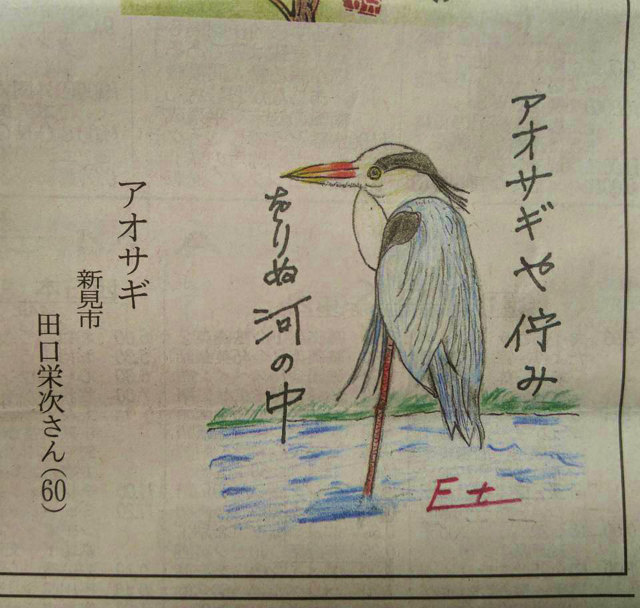 アオサギや佇み
をりぬ河の中
アオサギ
新見市
田口栄次さん(60)